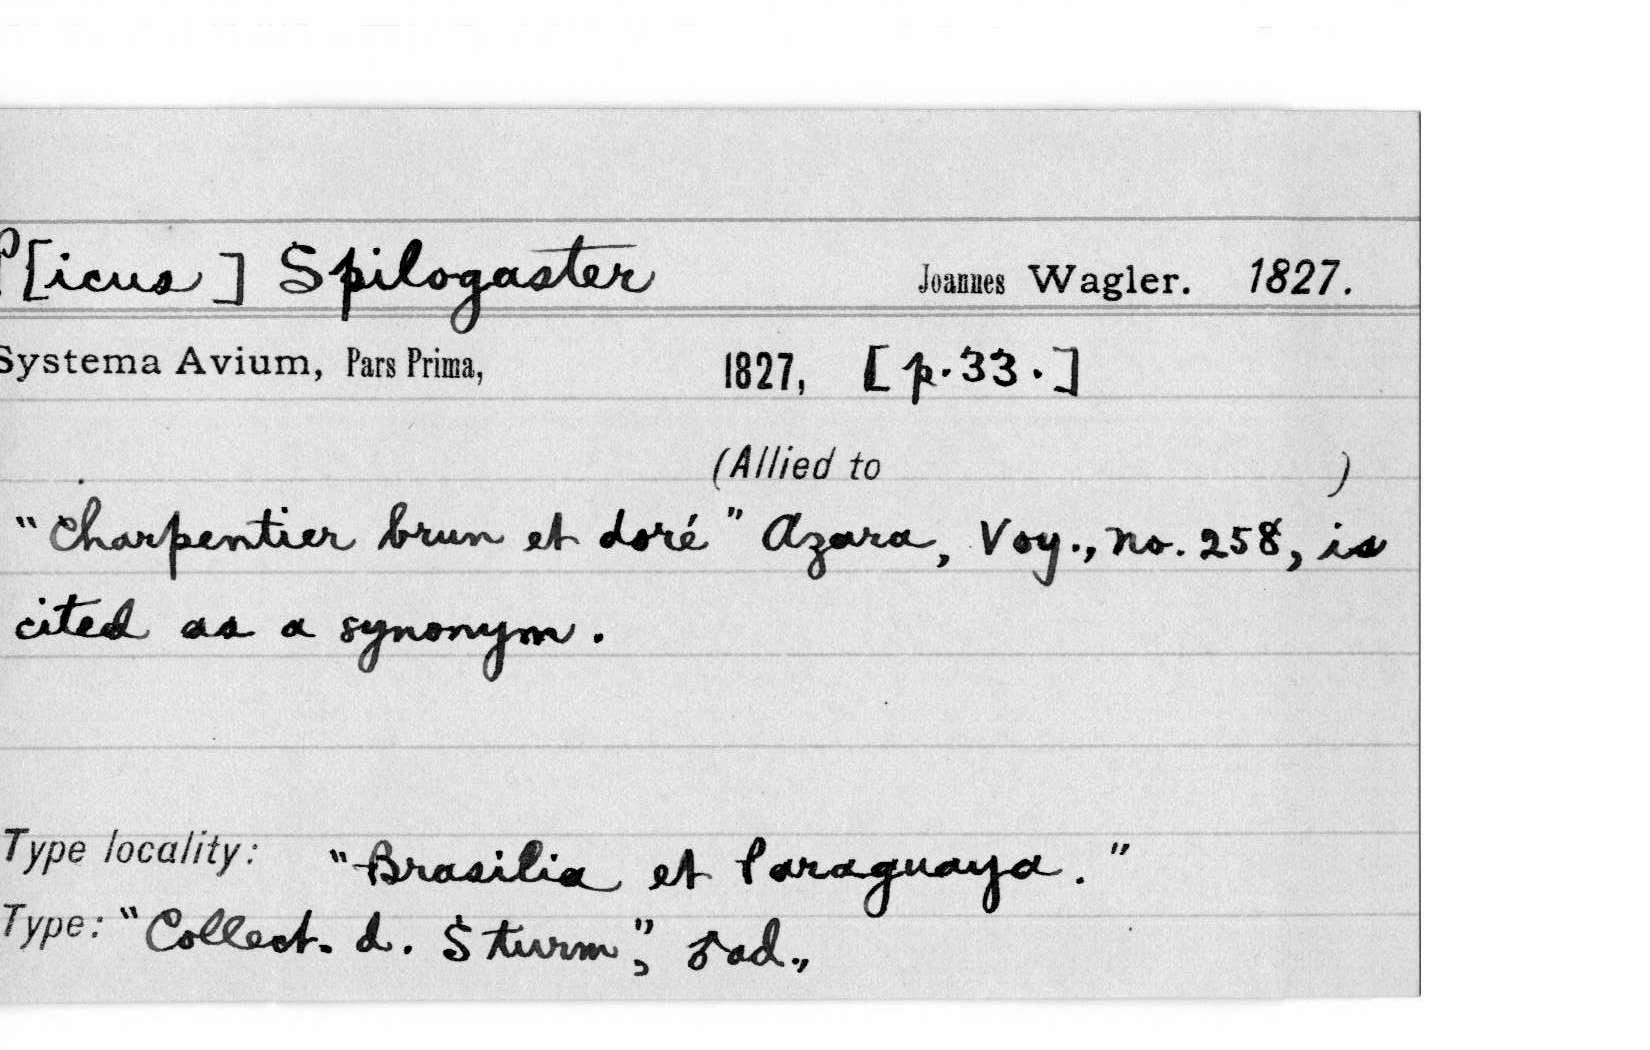 P[icus] Spilogaster Joannes Wagler. 1827.
Systema Avium, Pars Prima, 1827, [p.33.]
(Allied to )
"Charpentier brun et doré" Azara, Voy., no. 258, is
cited as a synonym.
Type locality: "Brasilia et Paraguaya."
Type: "Collect. d. Sturm", ♂ ad.,